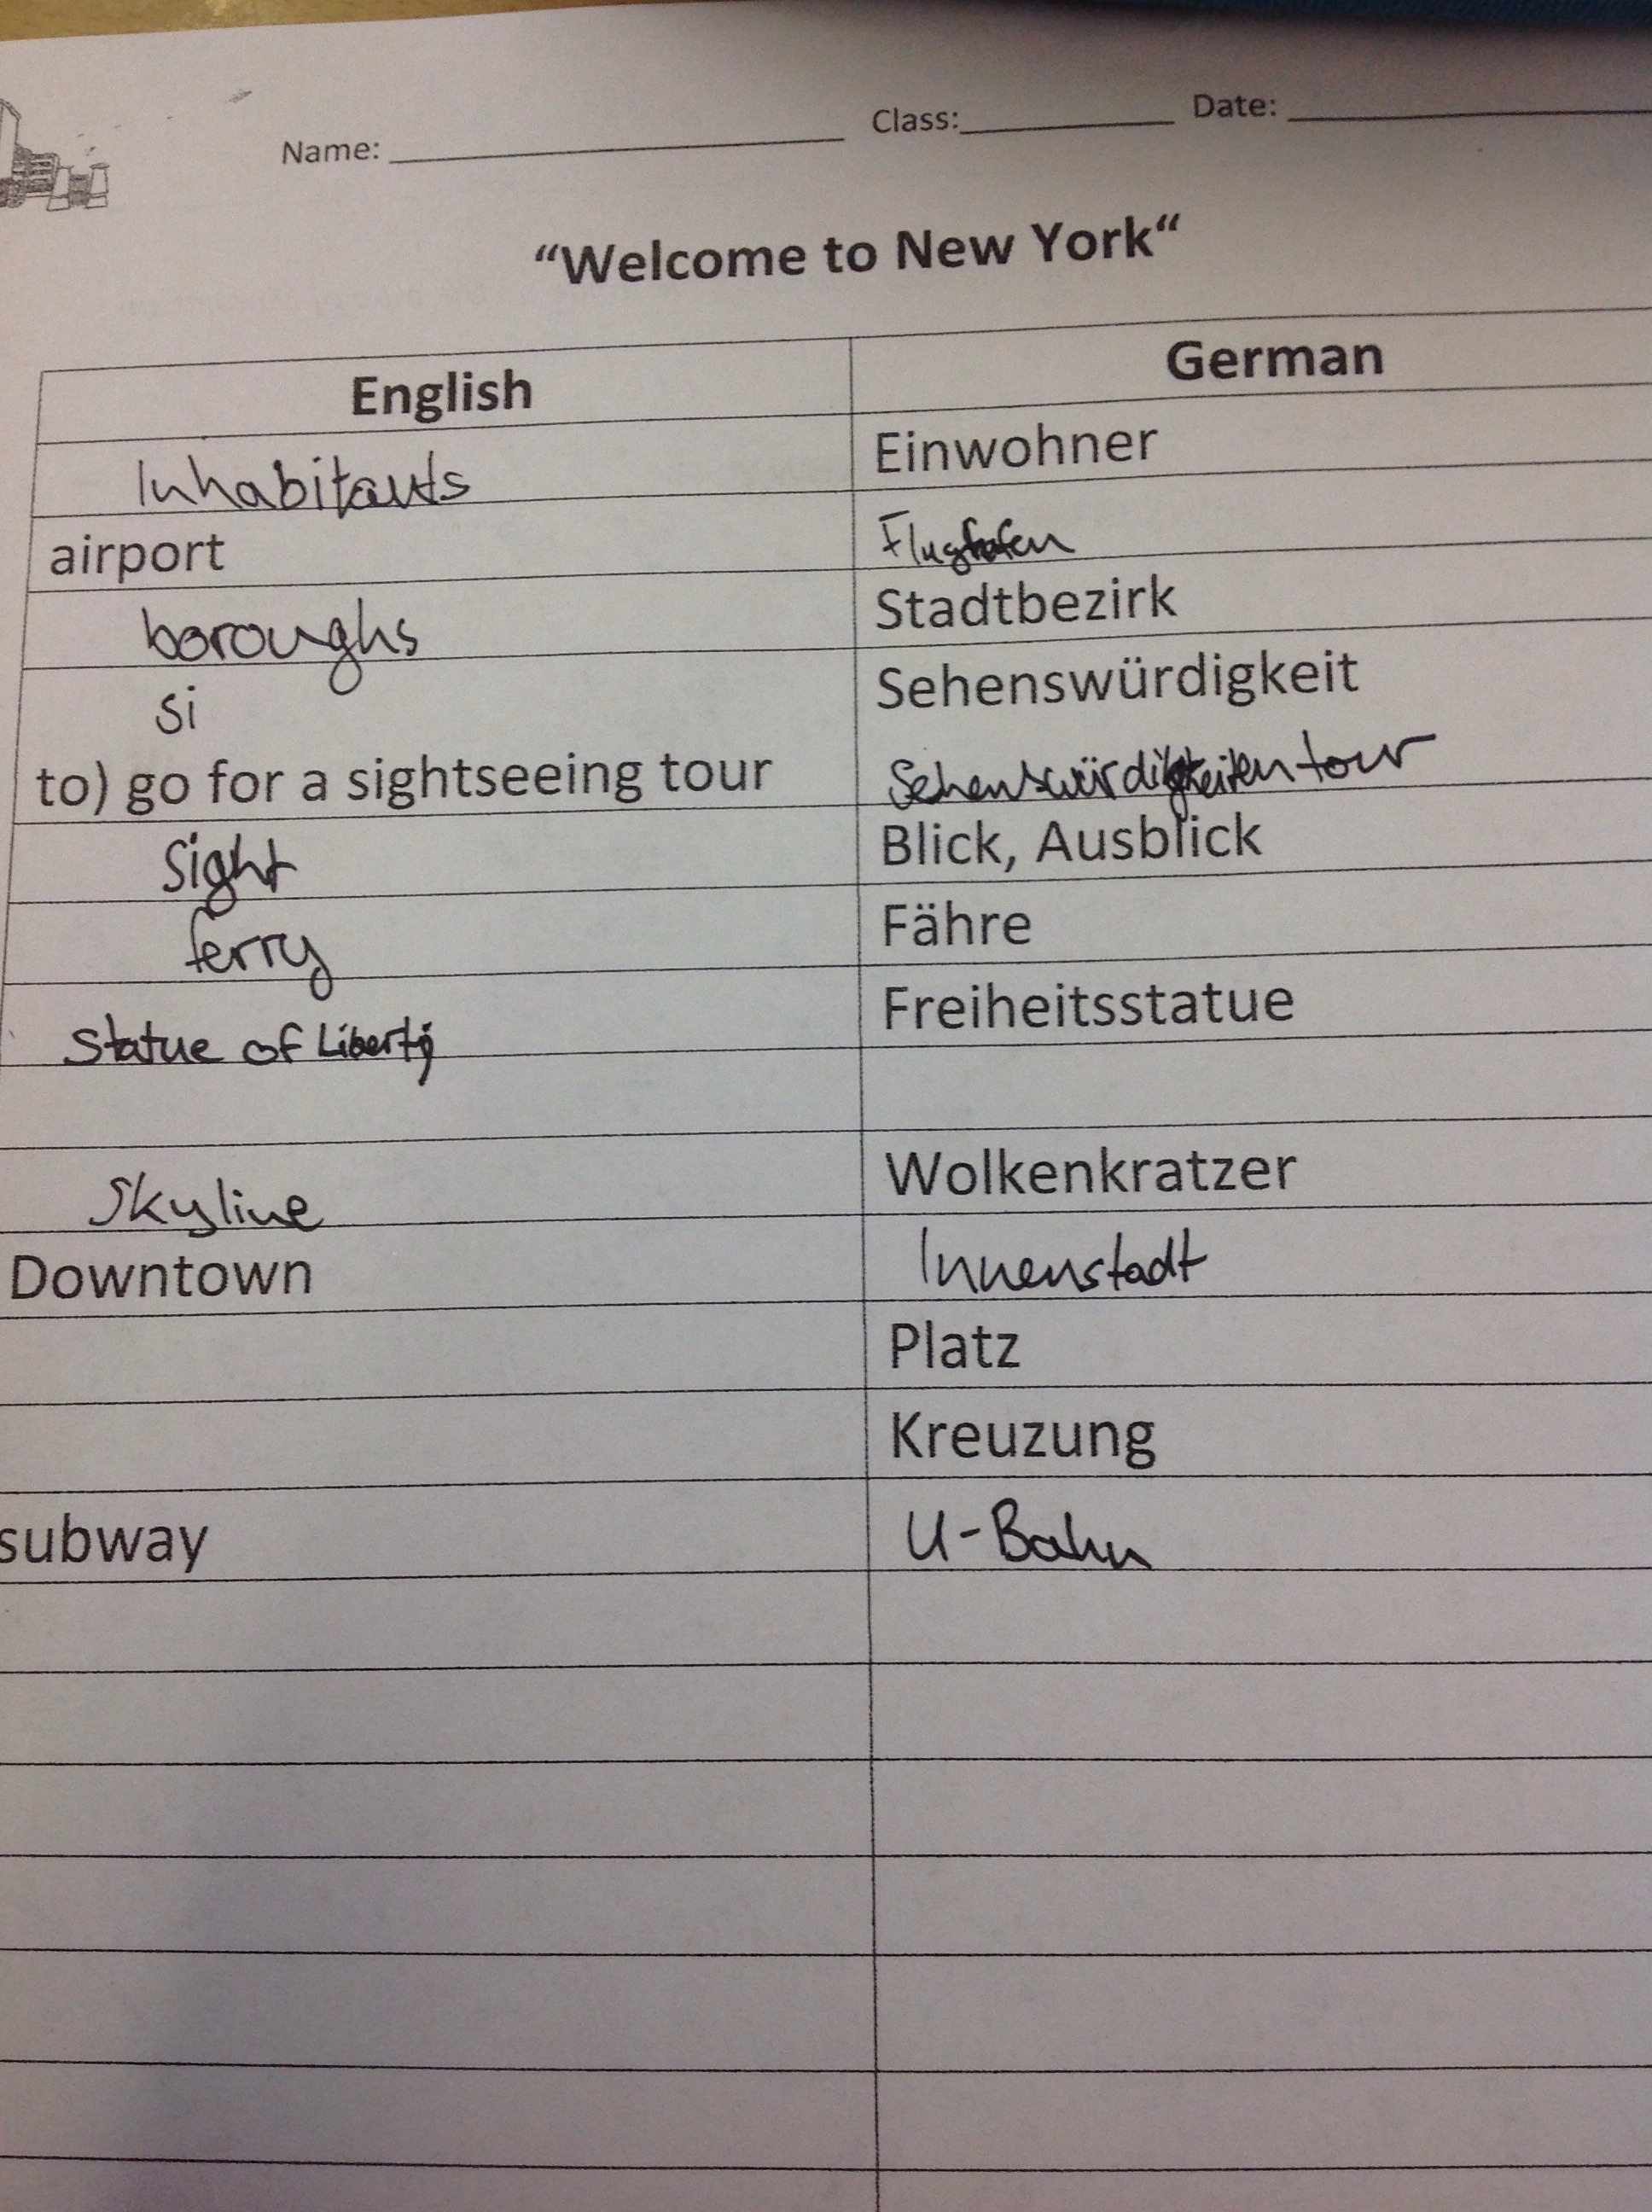 Name: Class: Date:
“Welcome to New York“
English German
Inhabitants Einwohner
airport Flughafen
boroughs Stadtbezirk
si Sehenswürdigkeit
to) go for a sightseeing tour Sehenswürdigkeitentour
Sight Blick, Ausblick
ferry Fähre
Statue of Liberty Freiheitsstatue
Skyline Wolkenkratzer
Downtown Innenstadt
Platz
Kreuzung
subway U-Bahn